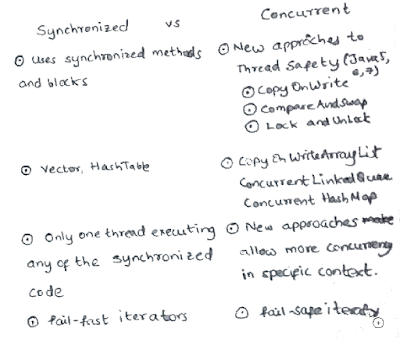 Synchronized vs Concurrent
⊙ Uses synchronized methods
and blocks
⊙ New approches to
Thread Safety (Java5,
6,7)
⊙ CopyOnWrite
⊙ CompareAndSwap
⊙ Lock and Unlock
⊙ Vector, HashTable
⊙ Copy On WriteArrayList
ConcurrentLinked
Concurrent HashMap
⊙ Only one thread executing
any of the synchronized
code
⊙ New approaches make
allow more
in specific context.
⊙ fail-fast iterators
⊙ fail-safe